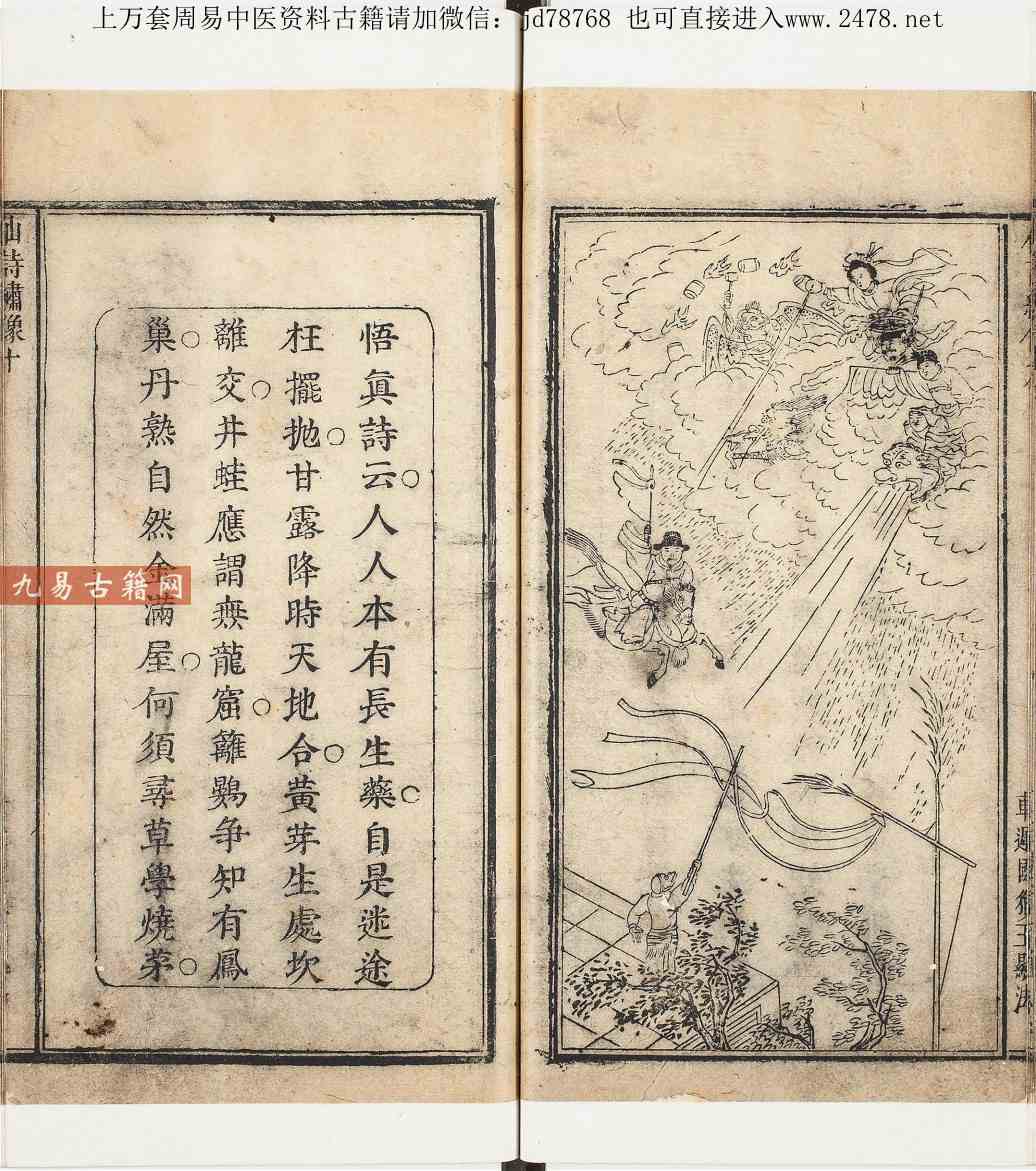 上万套周易中医资料古籍请加微信：jd78768 也可直接进入www.2478.net
車遲國猴王顯法
悟眞詩云人人本有長生藥自是迷途
枉擺抛甘露降時天地合黄芽生處坎
離交井蛙應謂無龍窟籬鷃争知有鳳
巢丹熟自然金滿屋何須尋草學燒茅
仙詩繡像十
九易古籍网